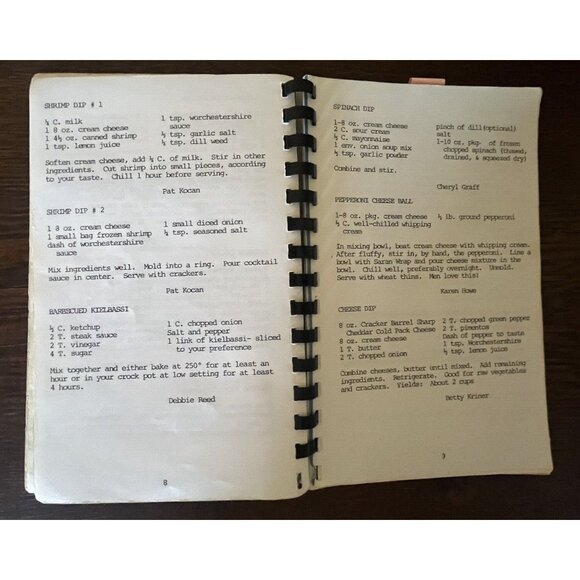 SHRIMP DIP # 1
¼ C. milk
1 8 oz. cream cheese
1 4½ oz. canned shrimp
1 tsp. lemon juice
1 tsp. worchestershire
sauce
½ tsp. garlic salt
½ tsp. dill weed
Soften cream cheese, add ¼ C. of milk. Stir in other
ingredients. Cut shrimp into small pieces, according
to your taste. Chill 1 hour before serving.
Pat Kocan
SHRIMP DIP # 2
1 8 oz. cream cheese
1 small bag frozen shrimp
dash of worchestershire
sauce
1 small diced onion
¼ tsp. seasoned salt
Mix ingredients well. Mold into a ring. Pour cocktail
sauce in center. Serve with crackers.
Pat Kocan
BARBECUED KIELBASSI
½ C. ketchup
2 T. steak sauce
2 T. vinegar
4 T. sugar
1 C. chopped onion
Salt and pepper
1 link of kielbassi- sliced
to your preference
Mix together and either bake at 250° for at least an
hour or in your crock pot at low setting for at least
4 hours.
Debbie Reed
8
SPINACH DIP
1-8 oz. cream cheese
2 C. sour cream
½ C. mayonnaise
1 env. onion soup mix
½ tsp. garlic powder
pinch of dill(optional)
salt
1-10 oz. pkg. of frozen
chopped spinach (thawed,
drained, & squeezed dry)
Combine and stir.
Cheryl Graff
PEPPERONI CHEESE BALL
1-8 oz. pkg. cream cheese
½ C. well-chilled whipping
cream
½ lb. ground pepperoni
In mixing bowl, beat cream cheese with whipping cream.
After fluffy, stir in, by hand, the pepperoni. Line a
bowl with Saran Wrap and pour cheese mixture in the
bowl. Chill well, preferably overnight. Unmold.
Serve with wheat thins. Men love this!
Karen Howe
CHEESE DIP
8 oz. Cracker Barrel Sharp
Cheddar Cold Pack Cheese
8 oz. cream cheese
1 T. butter
2 T. chopped onion
2 T. chopped green pepper
2 T. pimentos
Dash of pepper to taste
1 tsp. Worchestershire
½ tsp. lemon juice
Combine cheeses, butter until mixed. Add remaining
ingredients. Refrigerate. Good for raw vegetables
and crackers. Yields: About 2 cups
Betty Kriner